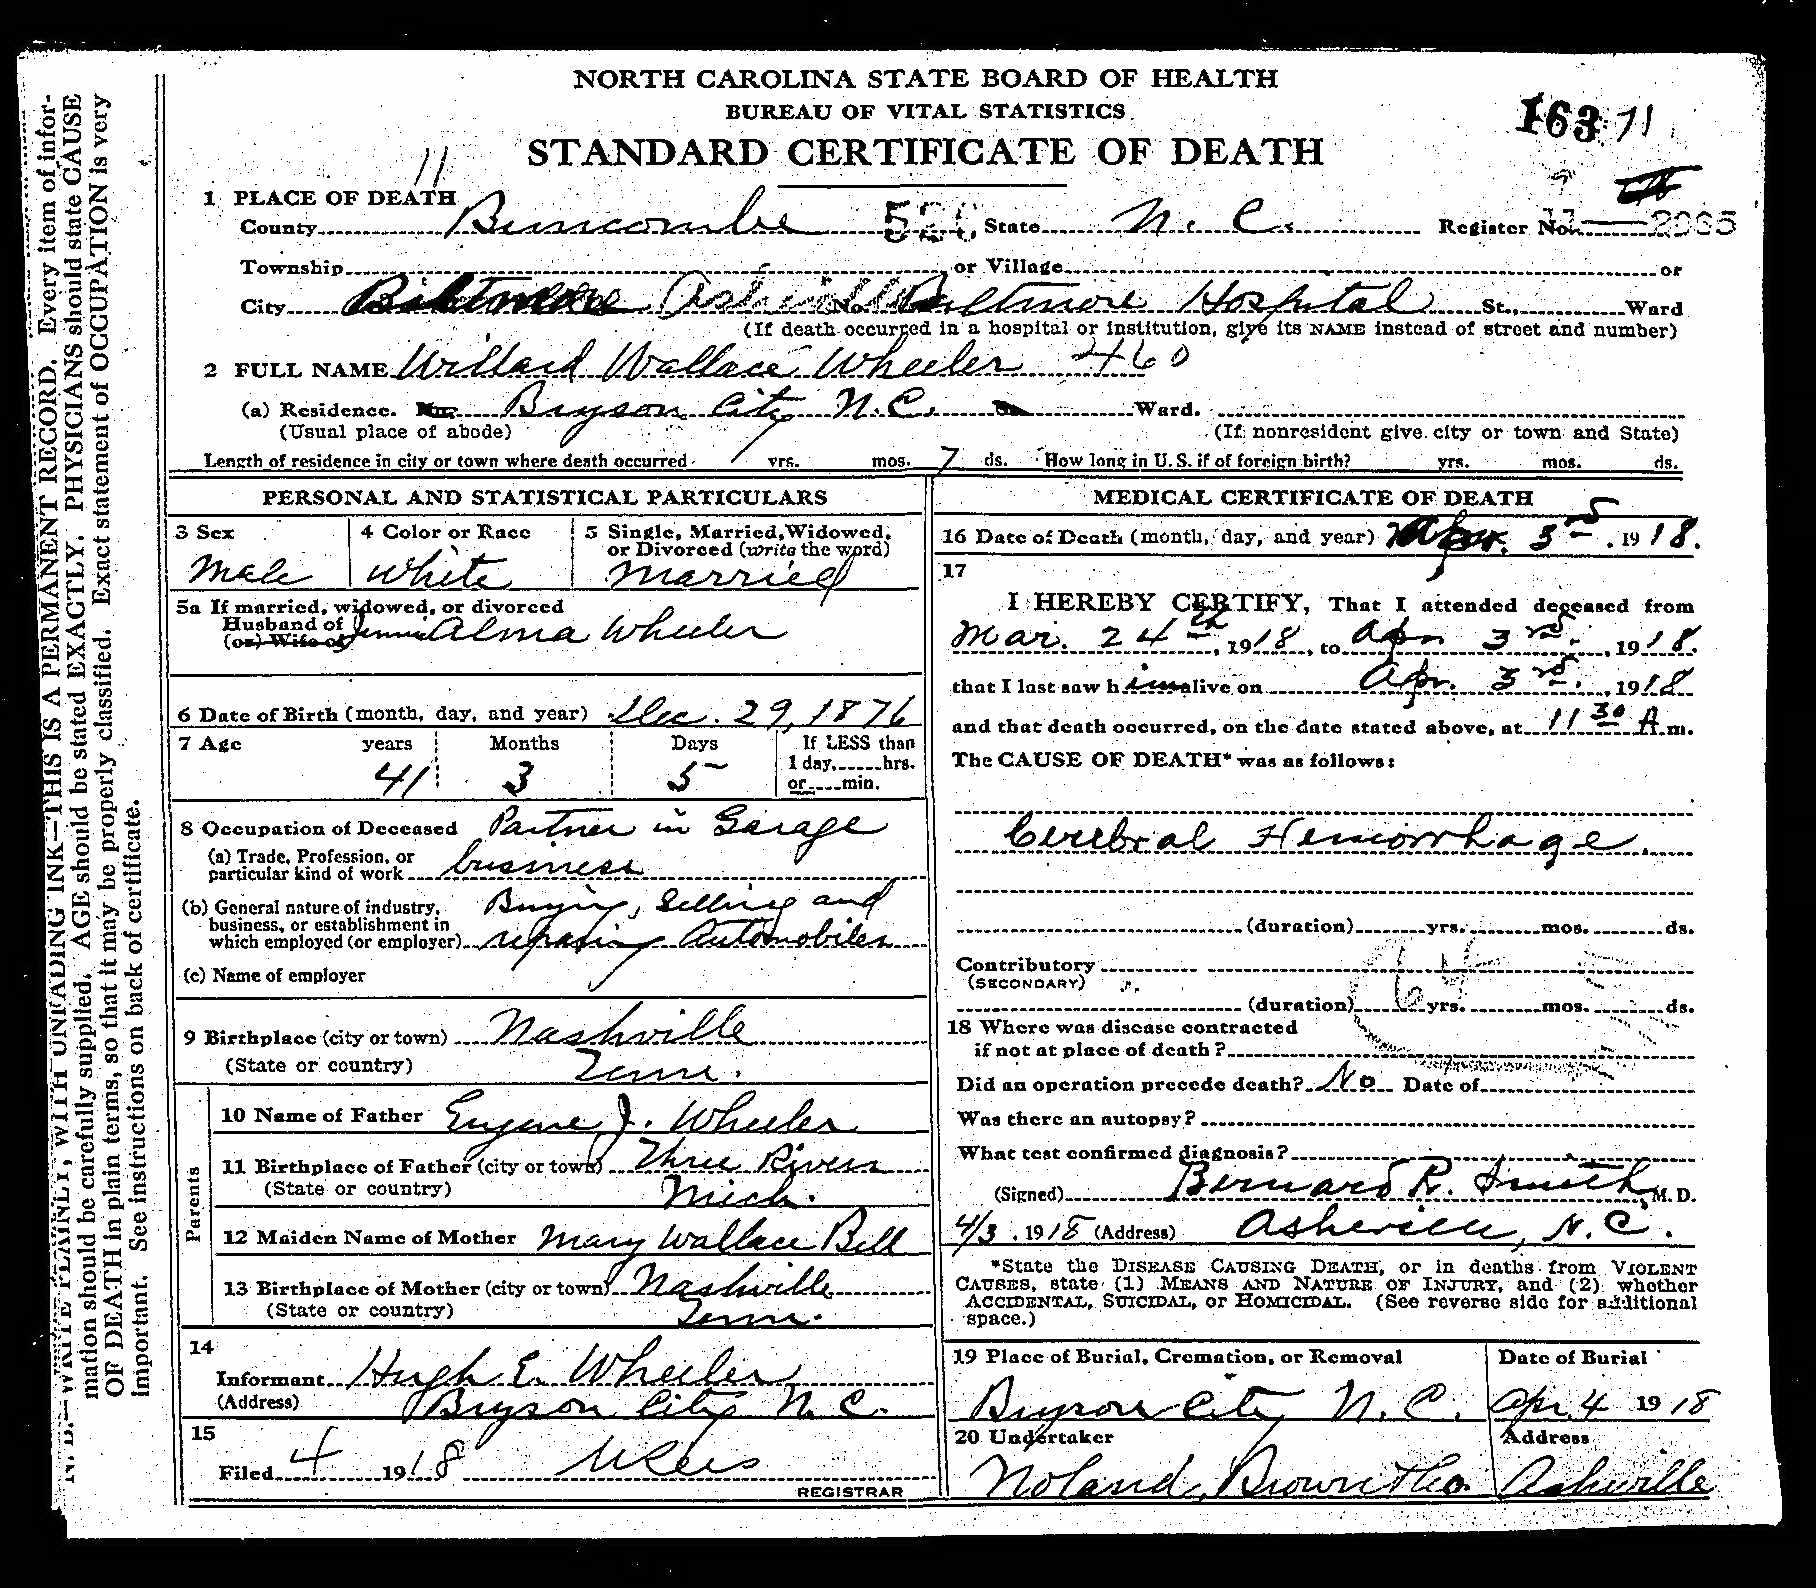 NORTH CAROLINA STATE BOARD OF HEALTH
BUREAU OF VITAL STATISTICS
STANDARD CERTIFICATE OF DEATH
163 71
11
1 PLACE OF DEATH
County Buncombe State N. C. Register No. 2985
Township or Village or
City Biltmore Asheville No. Biltmore Hospital St., Ward
(If death occurred in a hospital or institution, give its NAME instead of street and number)
2 FULL NAME Willard Wallace Wheeler 460
(a) Residence. No. Bryson City N.C. Ward.
(Usual place of abode) (If nonresident give city or town and State)
Length of residence in city or town where death occurred yrs. mos. 7 ds. How long in U. S. if of foreign birth? yrs. mos. ds.
PERSONAL AND STATISTICAL PARTICULARS
3 Sex 4 Color or Race 5 Single, Married, Widowed, or Divorced (write the word)
Male White Married
5a If married, widowed, or divorced
Husband of Jennie Alma Wheeler
(or) Wife of
6 Date of Birth (month, day, and year) Dec. 29, 1876
7 Age years Months Days If LESS than
1 day, hrs.
41 3 5 or min.
8 Occupation of Deceased Partner in Garage
(a) Trade, Profession, or
particular kind of work business
(b) General nature of industry, Buying, Selling and
business, or establishment in
which employed (or employer) repairing Automobiles
(c) Name of employer
9 Birthplace (city or town) Nashville
(State or country) Tenn.
Parents
10 Name of Father Eugene J. Wheeler
11 Birthplace of Father (city or town) Three Rivers
(State or country) Mich.
12 Maiden Name of Mother Mary Wallace Bell
13 Birthplace of Mother (city or town) Nashville
(State or country) Tenn.
14
Informant Hugh E. Wheeler
(Address) Bryson City N. C.
15
Filed 4 1918
REGISTRAR
MEDICAL CERTIFICATE OF DEATH
16 Date of Death (month, day, and year) Apr. 3rd. 1918.
17
I HEREBY CERTIFY, That I attended deceased from
Mar. 24th, 1918, to Apr 3rd., 1918.
that I last saw him alive on Apr. 3rd., 1918
and that death occurred, on the date stated above, at 11 30 A m.
The CAUSE OF DEATH* was as follows:
Cerebral Hemorrhage.
(duration) yrs. mos. ds.
Contributory
(SECONDARY)
(duration) yrs. mos. ds.
18 Where was disease contracted
if not at place of death?
Did an operation precede death? No Date of
Was there an autopsy?
What test confirmed diagnosis?
(Signed) Bernard R. Smith M. D.
4/3. 1918 (Address) Asheville, N. C.
*State the DISEASE CAUSING DEATH, or in deaths from VIOLENT
CAUSES, state (1) MEANS AND NATURE OF INJURY, and (2) whether
ACCIDENTAL, SUICIDAL, or HOMICIDAL. (See reverse side for additional
space.)
19 Place of Burial, Cremation, or Removal Date of Burial
Bryson City N. C. Apr 4 1918
20 Undertaker Address
Noland, Brown & Co. Asheville
N. B.—WRITE PLAINLY, WITH UNFADING INK—THIS IS A PERMANENT RECORD. Every item of infor-
mation should be carefully supplied. AGE should be stated EXACTLY. PHYSICIANS should state CAUSE
OF DEATH in plain terms, so that it may be properly classified. Exact statement of OCCUPATION is very
important. See instructions on back of certificate.